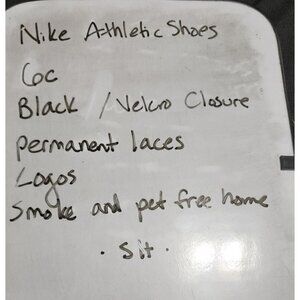 Nike Athletic Shoes
6c
Black / Velcro Closure
permanent laces
Logos
Smoke and pet free home